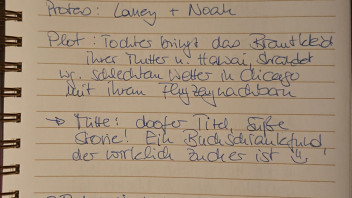 Protas: Laney + Noah
Plot: Tochter bringt das Brautkleid
ihrer Mutter n. Hawai, strandet
wg. schlechtem Wetter in Chicago
mit ihrem Flugzeugnachbarn
→ Hütte: doofer Titel, süße
Storie! Ein Buchschrankfund,
der wirklich Zucker ist